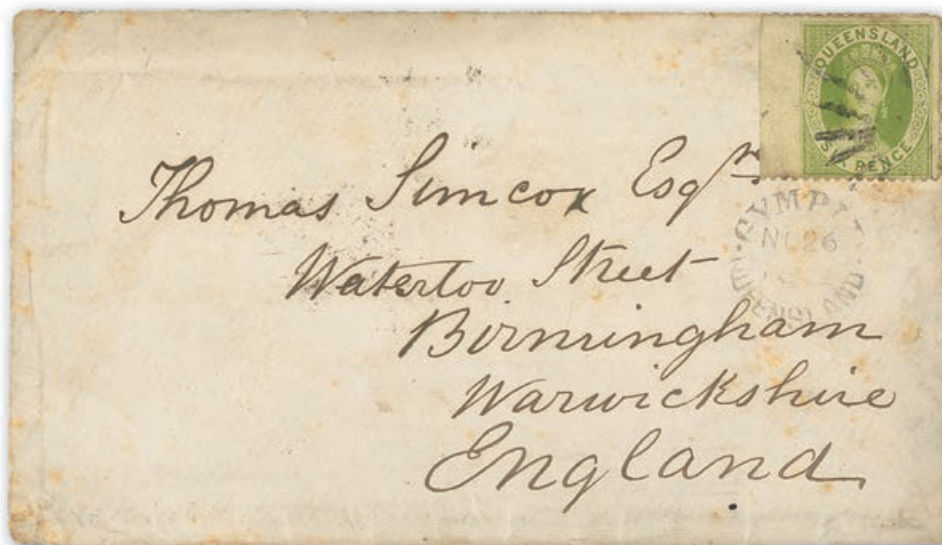 QUEENSLAND
SIX PENCE
Thomas Simcox Esqre
GYMPI
NO 26
QUEENSLAND
Waterloo Street
Birmingham
Warwickshire
England